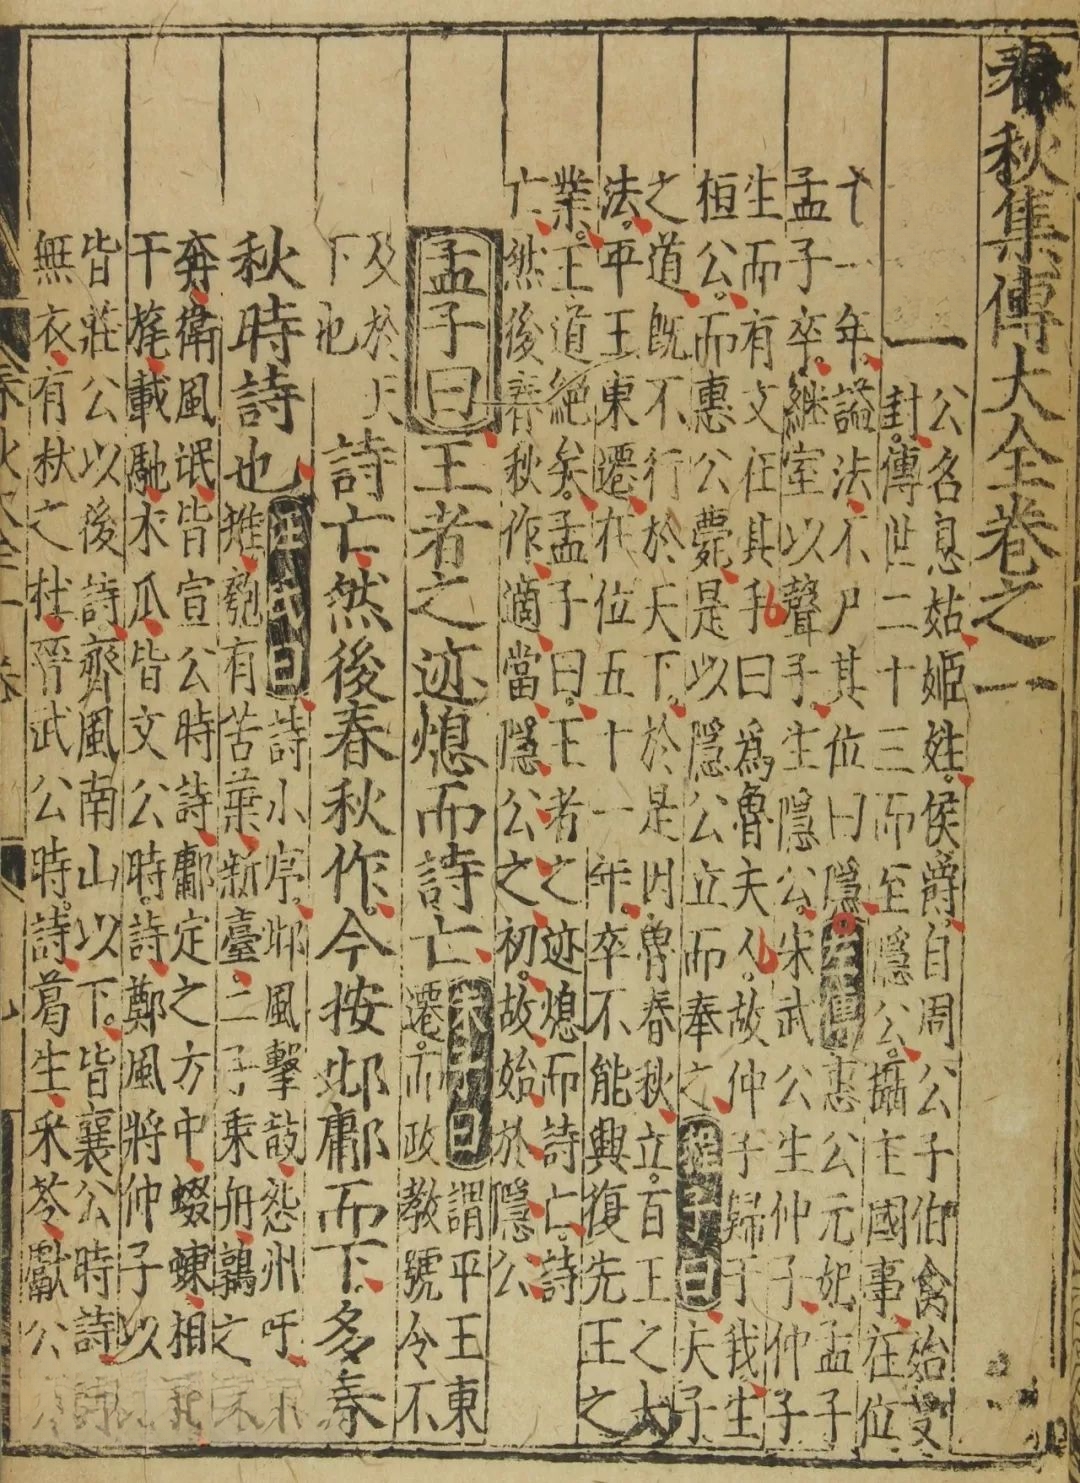 春秋集傳大全卷之一
一
公名息姑姬姓侯爵自周公子伯禽始受
封傳世二十三而至隱公攝主國事在位
十一年謚法不尸其位曰隱左傳惠公元妃孟子
孟子卒繼室以聲子生隱公宋武公生仲子仲子
生而有文在其手曰為魯夫人故仲子歸于我生
桓公而惠公薨是以隱公立而奉之程子曰夫子
之道既不行於天下於是因魯春秋立百王之大
法平王東遷在位五十一年卒不能興復先王之
業王道絕矣孟子曰王者之迹熄而詩亡詩
亡然後春秋作適當隱公之初故始於隱公
孟子曰王者之迹熄而詩亡朱子曰謂平王東
遷而政教號令不
及於天
下也
詩亡然後春秋作今按邶鄘而下多春
秋時詩也汪氏曰詩小序邶風擊鼓怨州吁
雉匏有苦葉新臺二子乘舟鶉之
奔衛風氓皆宣公時詩鄘定之方中蝃蝀相
干旄載馳木瓜皆文公時詩鄭風將仲子以
皆莊公以後詩齊風南山以下皆襄公時詩
無衣有杕之杜晉武公時詩葛生采苓獻公